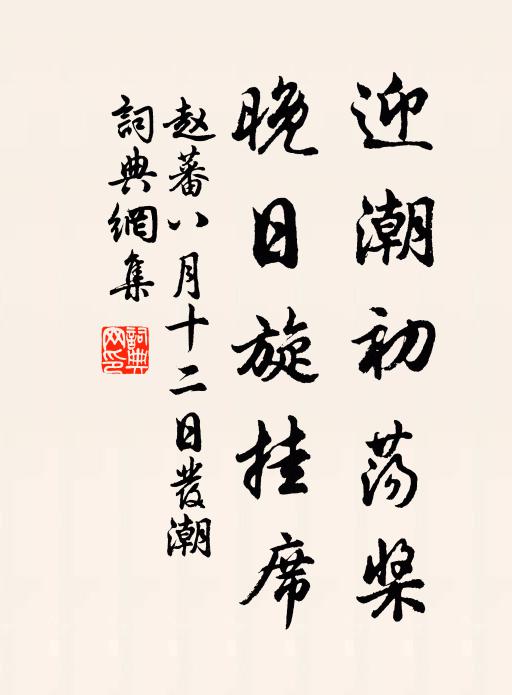 迎潮初荡桨
晚日旋挂席
赵蕃八月十二日发潮
詞典網集
詞典网印